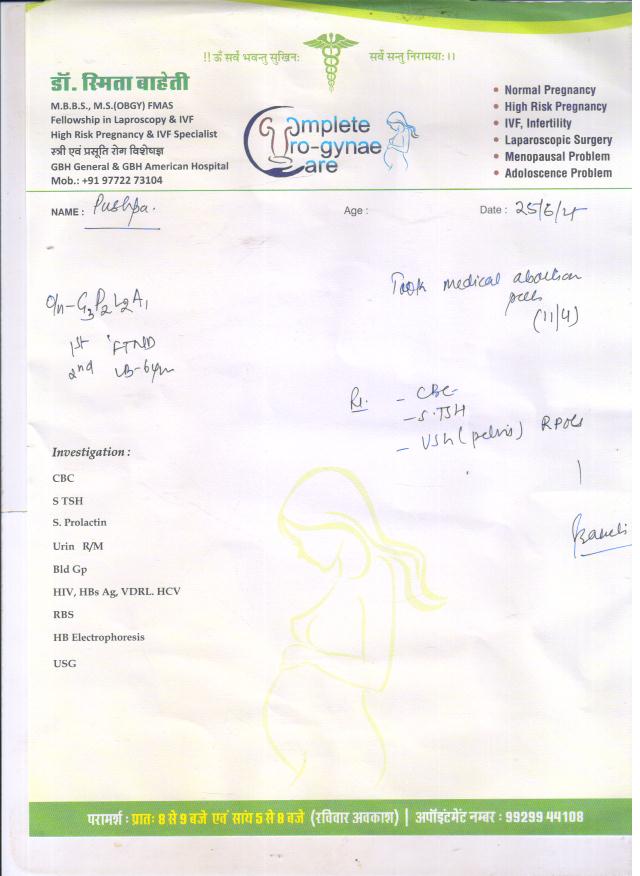 !! ॐ सर्वे भवन्तु सुखिनः सर्वे सन्तु निरामयाः ।।
डॉ. स्मिता बाहेती
M.B.B.S., M.S.(OBGY) FMAS
Fellowship in Laproscopy & IVF
High Risk Pregnancy & IVF Specialist
स्त्री एवं प्रसूति रोग विशेषज्ञ
GBH General & GBH American Hospital
Mob.: +91 97722 73104
Complete
Uro-gynae
Care
• Normal Pregnancy
• High Risk Pregnancy
• IVF, Infertility
• Laparoscopic Surgery
• Menopausal Problem
• Adoloscence Problem
NAME : Pushpa. Age : Date : 25/6/
Took medical abortion
pills
(11/4)
G3P2L2A1
1st FTND
2nd
- CBC
- S.TSH
- (pelvis) RPOCs
Investigation :
CBC
S TSH
S. Prolactin
Urin R/M
Bld Gp
HIV, HBs Ag, VDRL. HCV
RBS
HB Electrophoresis
USG
परामर्श : प्रातः 8 से 9 बजे एवं सायं 5 से 8 बजे (रविवार अवकाश) | अपॉइंटमेंट नम्बर : 99299 44108